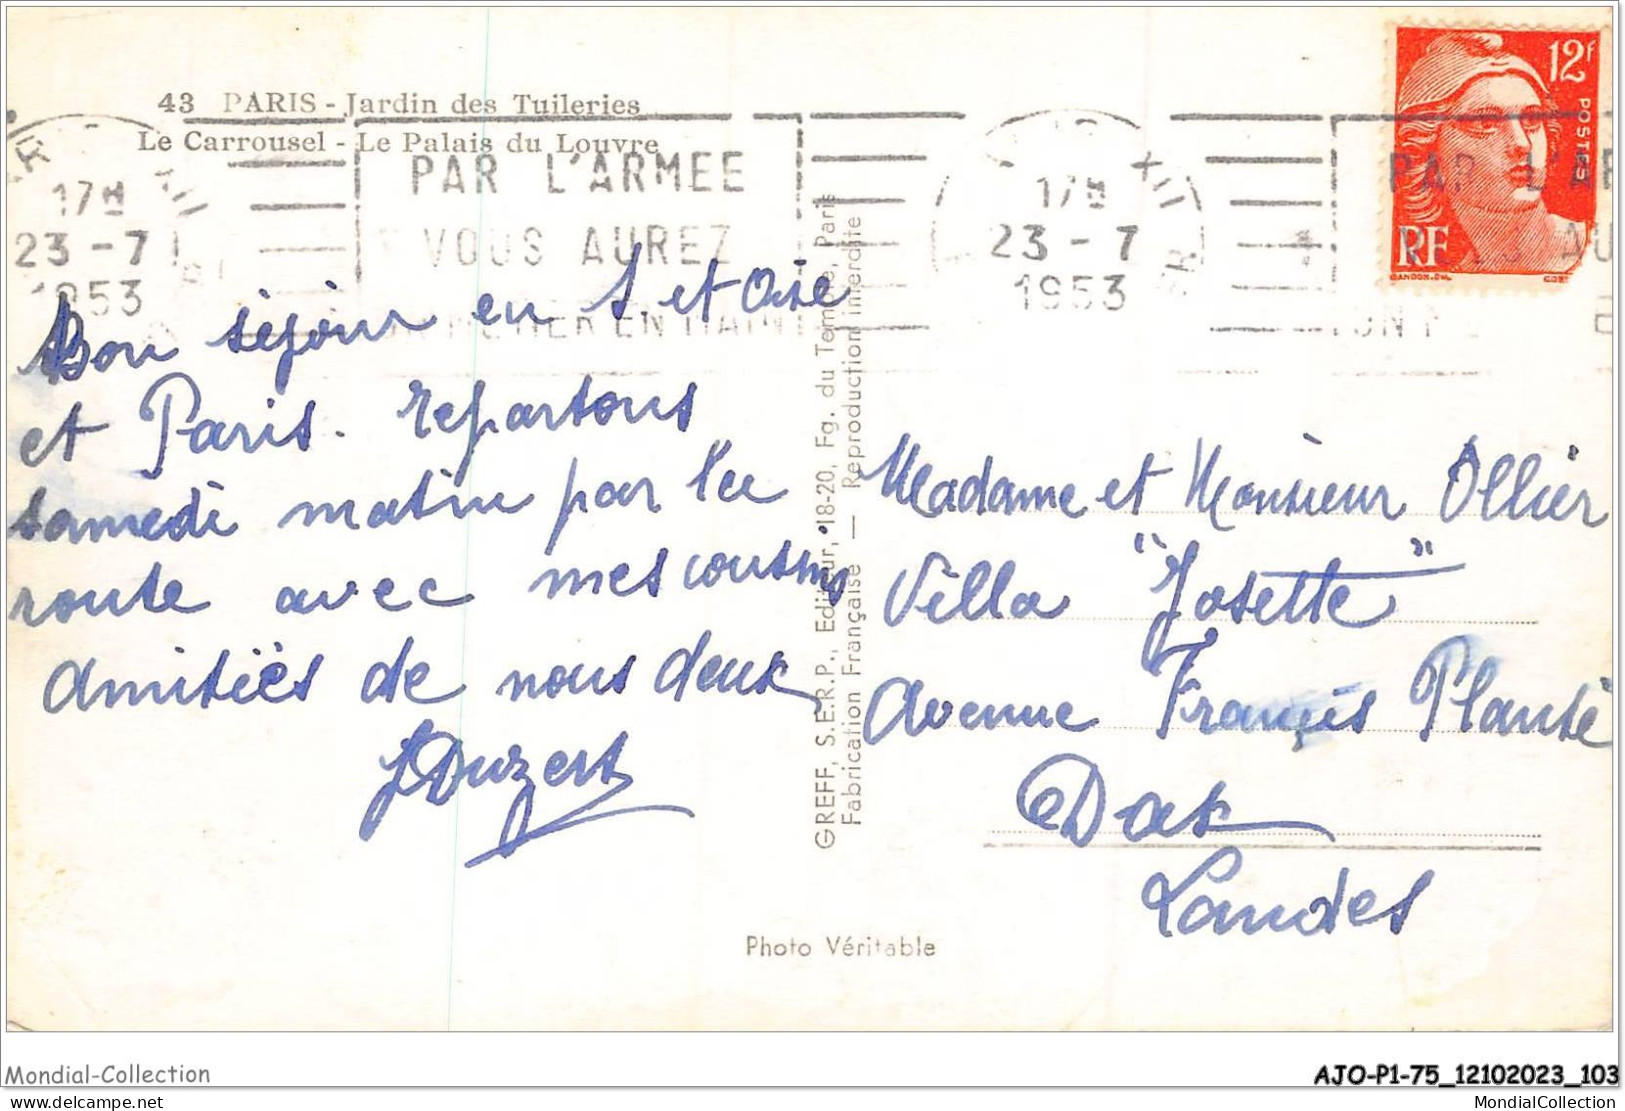 43 PARIS - Jardin des Tuileries
Le Carrousel - Le Palais du Louvre
17H
23 - 7
1953
PAR L'ARMEE
VOUS AUREZ
METIER EN MAIN
17H
23 - 7
1953
XVII
PAR L'AR
12F
POSTES
RF
GANDON.DEL.
Bon séjour en S. et Oise
et Paris. repartons
samedi matin par la
route avec mes cousins
Amitiés de nous deux
Duzert
GREFF, S.E.R.P., Editeur, 18-20, Fg. du Temple, Paris
Fabrication Française — Reproduction interdite
Madame et Monsieur Ollier
Villa "Josette"
Avenue Françis Planté
Dax
Landes
Photo Véritable
Mondial-Collection
AJO-P1-75_12102023_103
delcampe.net
MondialCollection